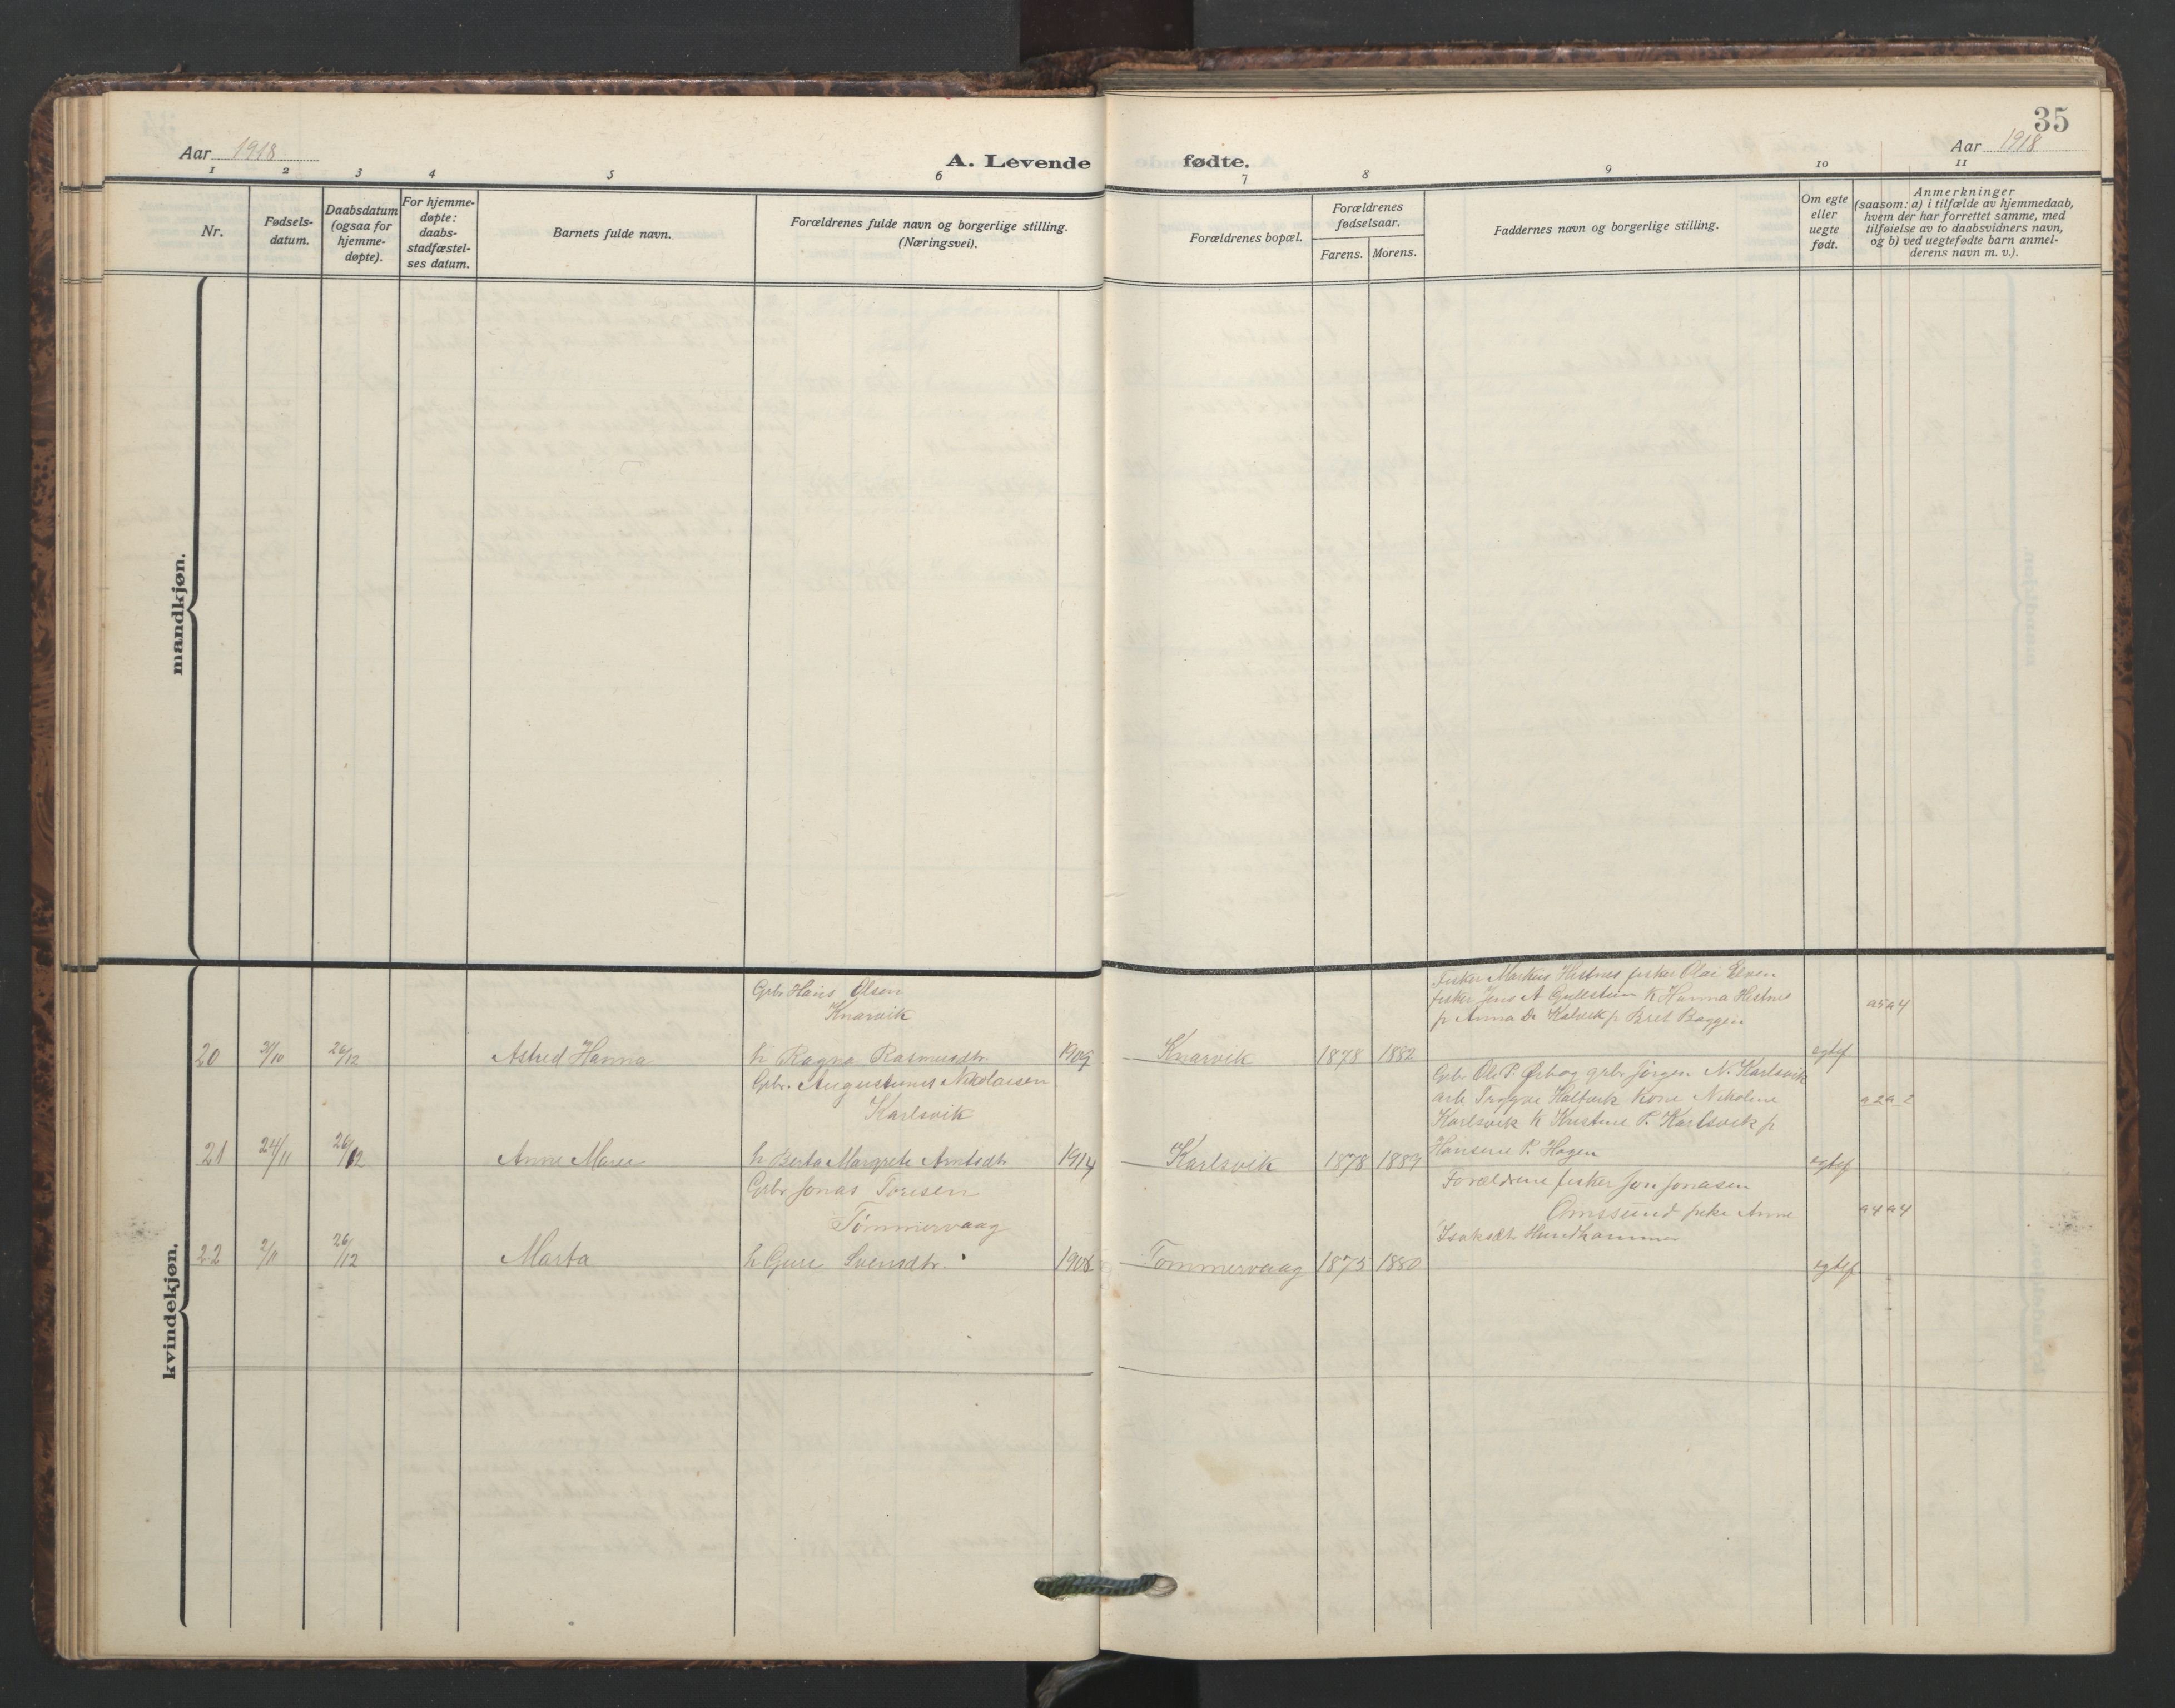 35
Aar 1918
A. Levende fødte.
Aar 1918
1 2 3 4 5 6 7 8 9 10 11
Nr.
Fødsels-
datum.
Daabsdatum
(ogsaa for
hjemme-
døpte).
For hjemme-
døpte:
daabs-
stadfæstel-
ses datum.
Barnets fulde navn.
Forældrenes fulde navn og borgerlige stilling.
(Næringsvei).
Forældrenes bopæl.
Forældrenes
fødselsaar.
Farens. Morens.
Faddernes navn og borgerlige stilling.
Om egte
eller
uegte
født.
Anmerkninger
(saasom: a) i tilfælde av hjemmedaab,
hvem der har forrettet samme, med
tilføielse av to daabsvidners navn,
og b) ved uegtefødte barn anmel-
derens navn m. v.).
mandkjøn.
kvindekjøn.
Gbr. Hans Olsen
Knarvik
20 31/10 26/12 Astrid Hanna h Ragna Rasmusdtr. 1909 Knarvik 1878 1882
fisker Markus Hestnes fisker Olai
fisker Jens A Gullstein K Hanna Hestnes
p Anna Kalvik p Bret Baggen
egtef a5 a4
Gbr. Augustinus Nikolaisen
Karlsvik
21 24/11 26/12 Anne Marie h Berta Margrete Arntsdtr 1914 Karlsvik 1878 1889
Gbr Ole P. gbr Jørgen N. Karlsvik
arb. Trygve kone Nikoline
Karlsvik K Kristine P. Karlsvik p
Hansine P. Hagen
egtef a2 a2
Gbr Jonas Toresen
Tømmervaag
22 2/11 26/12 Marta h Guri Svensdtr. 1908 Tømmervaag 1875 1880
Forældrene fisker Jon Jonasen
Omssund pike Anne
Isaksdtr Hundhammer
egtef a4 a4